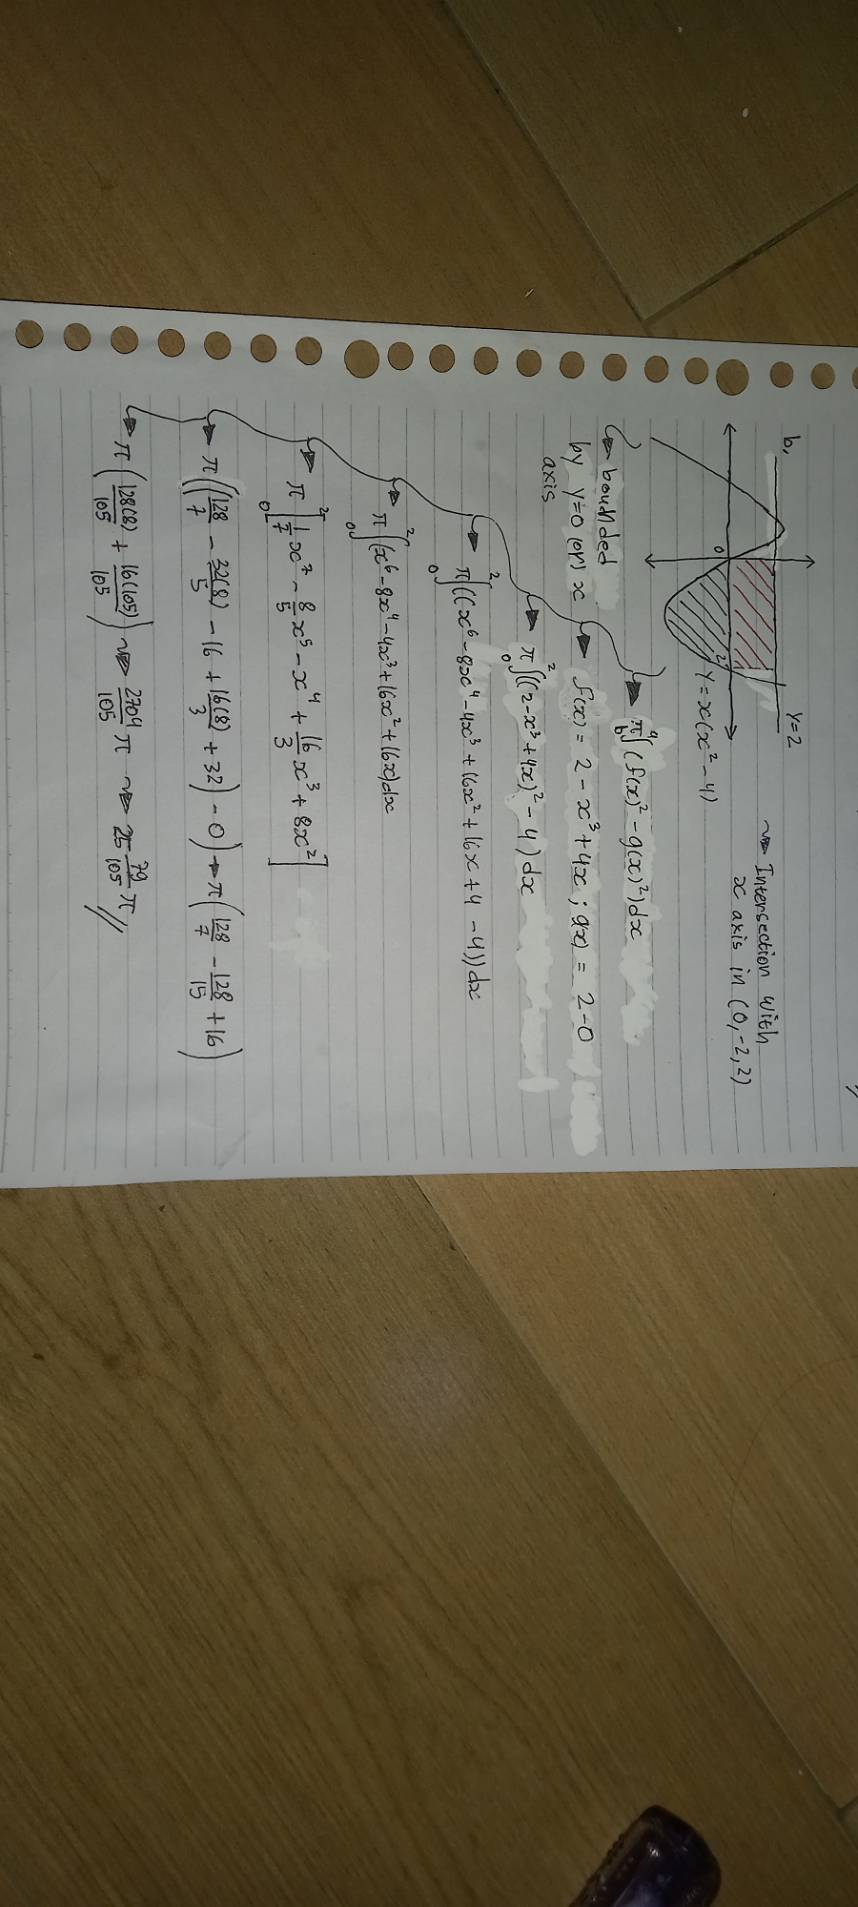 b,
y=2
0
2
y = x(x² - 4)
⇝ Intersection with
x axis in (0,-2,2)
↪ bounded
by y=0 (or) x
axis
π ∫ (f(x)² - g(x)²)dx
f(x) = 2 - x³ + 4x ; g(x) = 2 - 0
π ₀∫² ((2-x³+4x)² - 4) dx
π ₀∫² ((x⁶ - 8x⁴ - 4x³ + 16x² + 16x + 4 - 4)) dx
π ₀∫² (x⁶ - 8x⁴ - 4x³ + 16x² + 16x) dx
π ₀[1/7 x⁷ - 8/5 x⁵ - x⁴ + 16/3 x³ + 8x²]²
π((128/7 - 32(8)/5 - 16 + 16(8)/3 + 32) - 0) → π(128/7 - 128/15 + 16)
π(128(8)/105 + 16(105)/105) ⇝ 2704/105 π ⇝ 25 79/105 π //